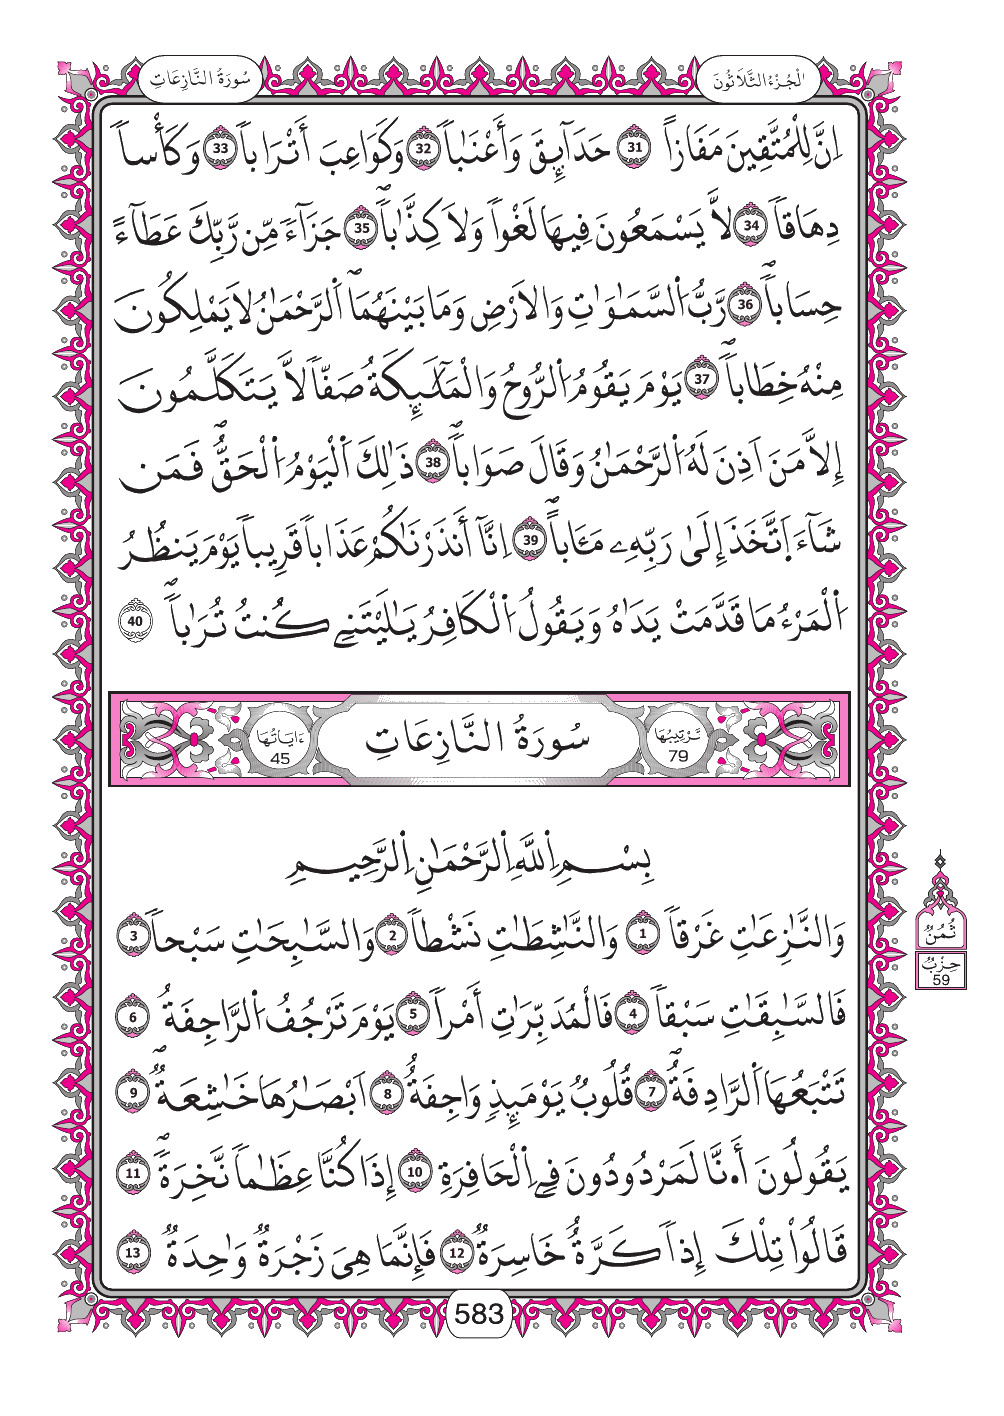 الْجُزْءُ الثَّلَاثُونَ
سُورَةُ النَّازِعَاتِ
اِنَّ لِلْمُتَّقِينَ مَفَازاً 31 حَدَآئِقَ وَأَعْنَٰباً 32 وَكَوَاعِبَ أَتْرَاباً 33 وَكَأْساً
دِهَاقاً 34 لاَّ يَسْمَعُونَ فِيهَا لَغْواً وَلاَ كِذَّٰباً 35 جَزَآءً مِّن رَّبِّكَ عَطَآءً
حِسَاباً 36 رَّبُّ اُ۬لسَّمَٰوَٰتِ وَالاَرْضِ وَمَا بَيْنَهُمَا اَ۬لرَّحْمَٰنُ لاَ يَمْلِكُونَ
مِنْهُ خِطَاباً 37 يَوْمَ يَقُومُ اُ۬لرُّوحُ وَالْمَلَٰٓئِكَةُ صَفّاً لاَّ يَتَكَلَّمُونَ
إِلاَّ مَنَ اَذِنَ لَهُ اُ۬لرَّحْمَٰنُ وَقَالَ صَوَاباً 38 ذَٰلِكَ اَ۬لْيَوْمُ اُ۬لْحَقُّ فَمَن
شَآءَ اَ۪تَّخَذَ إِلَىٰ رَبِّهِۦ مَـَٔاباً 39 اِنَّآ أَنذَرْنَٰكُمْ عَذَاباً قَرِيباً يَوْمَ يَنظُرُ
اُ۬لْمَرْءُ مَا قَدَّمَتْ يَدَٰهُ وَيَقُولُ اُ۬لْكَافِرُ يَٰلَيْتَنِے كُنتُ تُرَٰباً 40
تَرْتِيبُهَا 79
سُورَةُ النَّازِعَاتِ
ءَايَاتُهَا 45
بِسْمِ اِ۬للَّهِ اِ۬لرَّحْمَٰنِ اِ۬لرَّحِيمِ
وَالنَّٰزِعَٰتِ غَرْقاً 1 وَالنَّٰشِطَٰتِ نَشْطاً 2 وَالسَّٰبِحَٰتِ سَبْحاً 3
فَالسَّٰبِقَٰتِ سَبْقاً 4 فَالْمُدَبِّرَٰتِ أَمْراً 5 يَوْمَ تَرْجُفُ اُ۬لرَّاجِفَةُ 6
تَتْبَعُهَا اَ۬لرَّادِفَةُ 7 قُلُوبٌ يَوْمَئِذٍ وَاجِفَةٌ 8 اَبْصَٰرُهَا خَٰشِعَةٌ 9
يَقُولُونَ أَ.نَّا لَمَرْدُودُونَ فِے اِ۬لْحَافِرَةِ 10 إِذَا كُنَّا عِظَٰماً نَّخِرَةً 11
قَالُواْ تِلْكَ إِذاً كَرَّةٌ خَاسِرَةٌ 12 فَإِنَّمَا هِىَ زَجْرَةٌ وَٰحِدَةٌ 13
ثُمُنٌ
حِزْبٌ
59
583